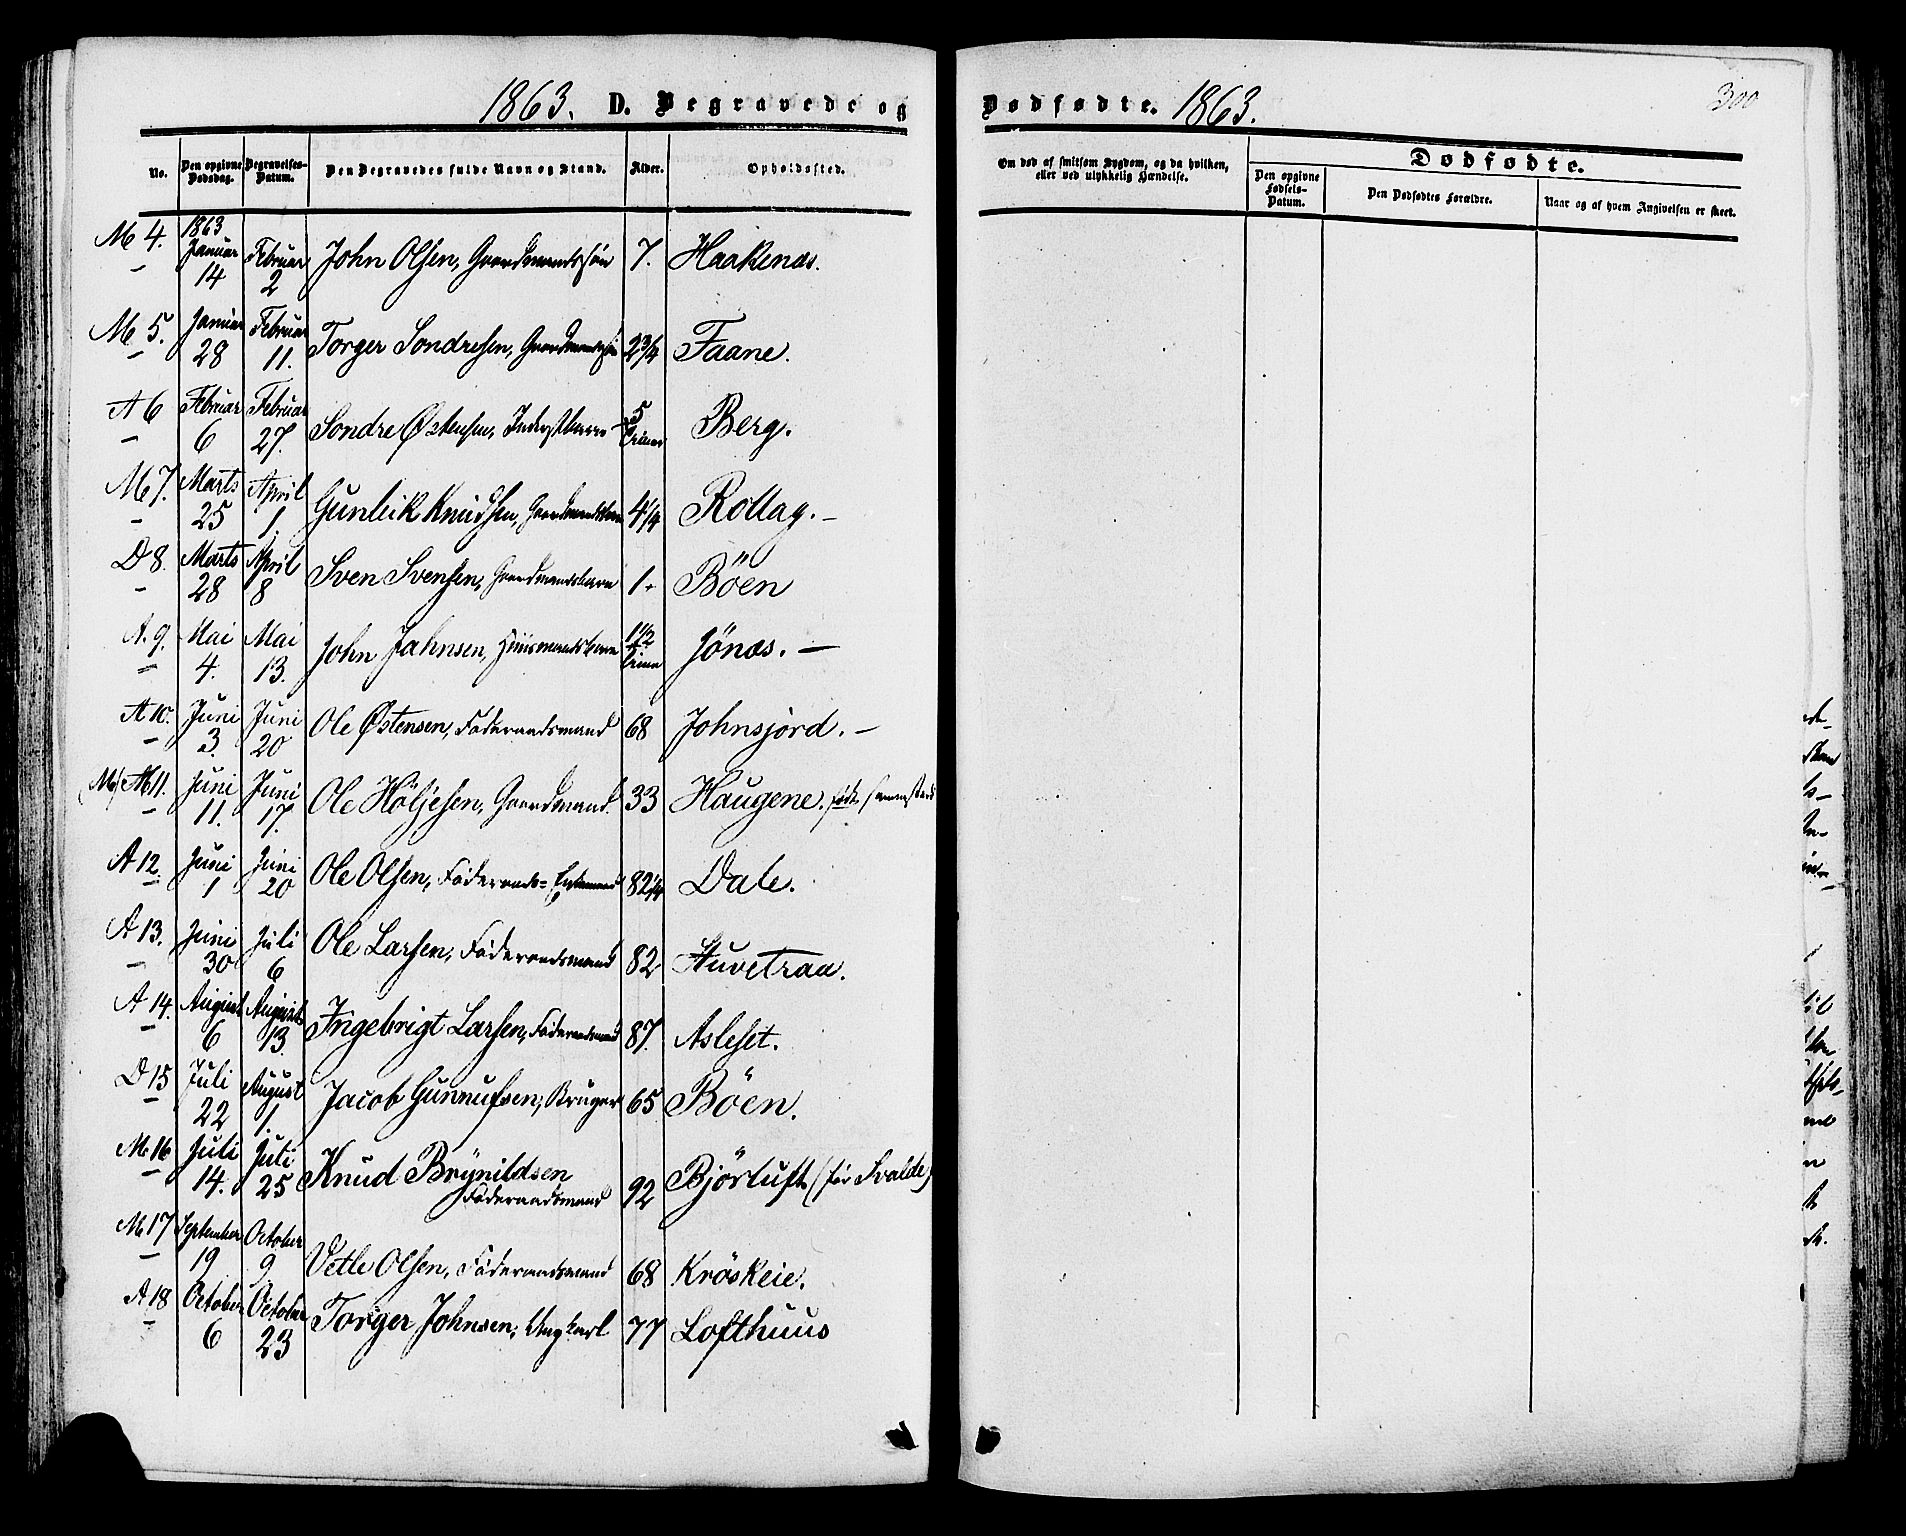 1863. D. Begravede og
No. Den opgivne Dødsdag. Begravelses-Datum. Den Begravedes fulde Navn og Stand. Alder. Opholdssted.
M 4. 1863 Januar 14 Februar 2 John Olsen, Gaardmandssøn 7. Haakenæs.
M 5. Januar 28 Februar 11. Torger Sondresen, Gaardmandssøn 2 3/4 Faane.
A 6 Februar 6 Februar 27. Sondre Østensen, Inderstbarn 5 Berg.
M 7. Marts 25 April 1. Gunleik Knudsen, Gaardmandsbarn 4 1/4 Rollag. –
D 8. Marts 28 April 8 Sven Svensen, Gaardmandsbarn 1. Böen
A. 9. Mai 4. Mai 13. John Jahnsen, Huusmandsbarn 1 1/2 Jönæs. –
A 10. Juni 3. Juni 20 Ole Østensen, Föderaadsmand 68 Johnsjord. –
(M) M 11. Juni 11. Juni 17. Ole Höljesen, Gaardmand. 33 Haugene. födt sammesteds
A 12. Juni 1 Juni 20 Ole Olsen, Föderaads= Enkemand 82 1/4 Dale.
A 13. Juni 30 Juli 6 Ole Larsen, Föderaadsmand 82 Stuvetraa.
A 14. August 6 August 13. Ingebrigt Larsen, Föderaadsmand 87. Aslefet.
D 15 Juli 22 August 1. Jacob Gunnufsen, Bruger 65 Böen.
M 16 Juli 14. Juli 25 Knud Brynildsen Föderaadsmand 92 Bjørtuft (før Svalde)
M 17 September 19 October 9 Vetle Olsen, Föderaadsmand 68 Kröskeie.
A 18 October 6 October 23 Torger Johnsen, Ungkarl 77 Lofthuus
Dødfødte. 1863.
300
Om død af smitsom Sygdom, og da hvilken, eller ved ulykkelig Hændelse.
Dødfødte.
Den opgivne Fødsels-Datum. Den Dødfødtes Forældre. Naar og af hvem Angivelsen er skeet.